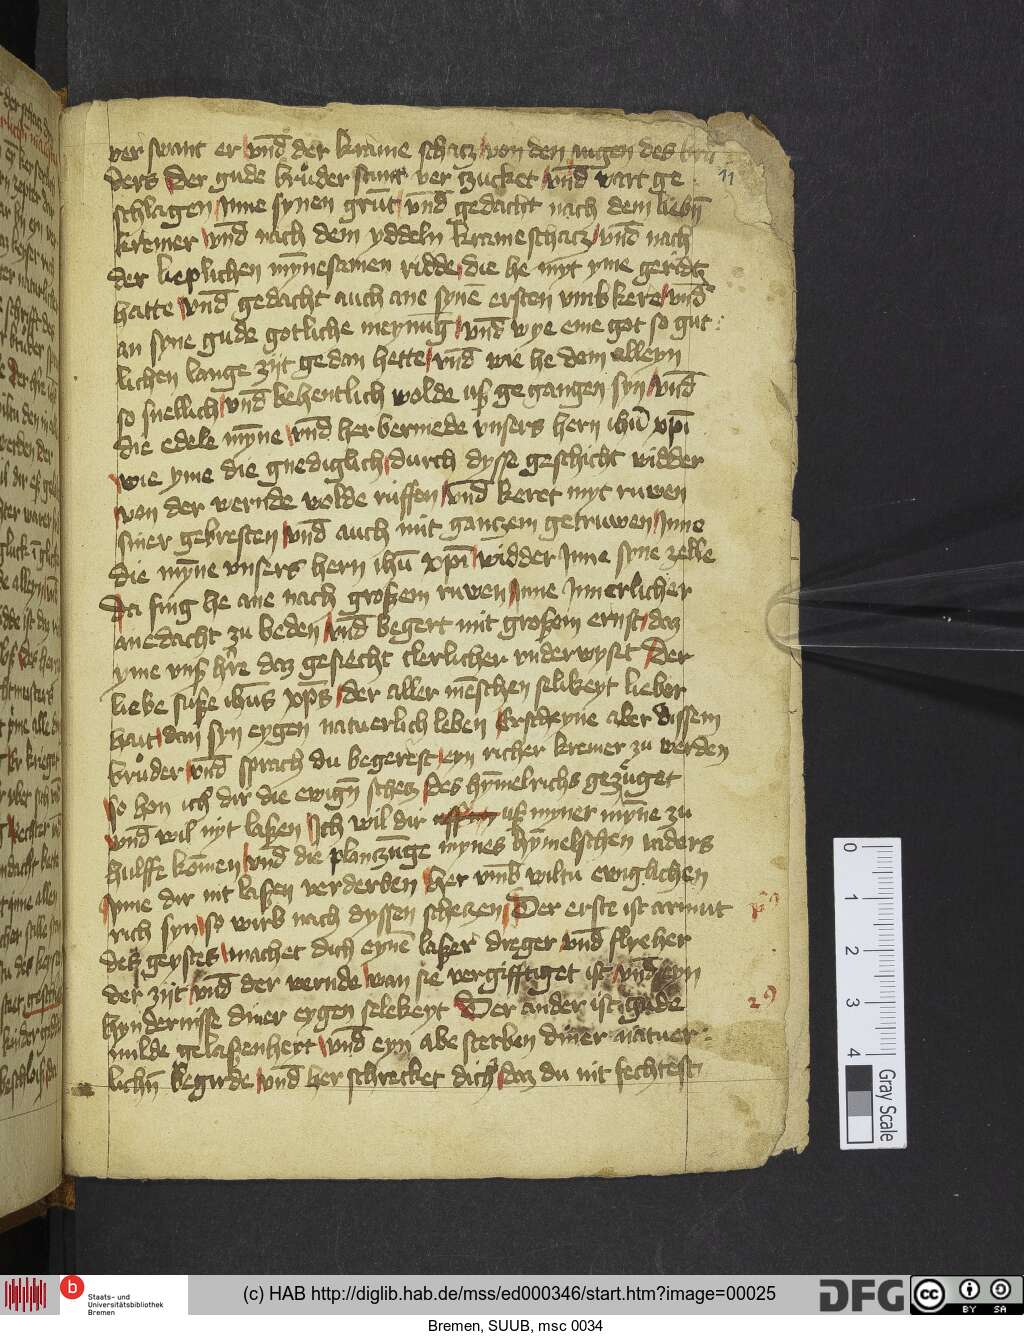 11
ver swant er vnd der krame schatz von den augen des bru
ders Der gude bruͦder stunt ver zucket vnd wart ge
schlagen Inne synen grūt vnd gedacht nach dem liebn̄
kremer vnd nach dem yddeln krameschatz vnd nach
der lieplichen mȳnesamen ridde die he myt yme geridtz
hatte vnd gedacht auch ane synē ersten vmb kere vnd
an syne gude gotliche meynūg vnd wye eme got so gut
lichen lange zijt gedan hette vnd wie he dem alleyn
so snellich vnd behentlich wolde uß gegangen syn vnd
die edele mȳne vnd herbermede vnsers hern ihū xpī
wie yme die gnediglich durch dysse geschicht widder
von der wernde wolde ruffen vnd keret myt ruwen
siner gebresten vnd auch mit gantzem getruwen Inne
die mȳne vnsers hern ihū xpī widder Inne syne zelle
Da fing he ane nach großem ruwen Inne Innerlicher
anedacht zu beden vnd begert mit großem ernst daz
yme vnß h're daz gesiecht clerlicher vnderwyset Der
liebe suße ihūs xps der aller mēschen selikeyt lieber
haut dan syn eygen natuerlich leben Erscheyne aber dissem
bruͦder vnd sprach du begerest eyn richer kremer zu werden
so hon ich dir die ewign̄ schetz des hȳmelrichs gezuͤget
vnd wil nyt laßen Ich wil dir uß myner mȳne zu
hulffe kōmen vnd die planczūge mynes hȳmelschen vaders
Inne dir nit laßen verderben Her vmb wiltu ewiglichen
rich syn so wirb nach dyssen schetzen Der erste ist armut
deß geystes machet dich eynē laßer dreger vnd flyeher
der zijt vnd der wernde wan sie vergifftiget ist vnd eyn
hyndernisse diner eygen selekeyt Der ander ist gude
milde gelaßenheit vnd eyn abe sterben diner natuer
lichn̄ begirde vnd her schrecket dich daz du nit fechtest
2
0
1
2
3
4
Gray Scale
b
Staats- und
Universitätsbibliothek
Bremen
(c) HAB http://diglib.hab.de/mss/ed000346/start.htm?image=00025
DFG
cc
BY SA
Bremen, SUUB, msc 0034